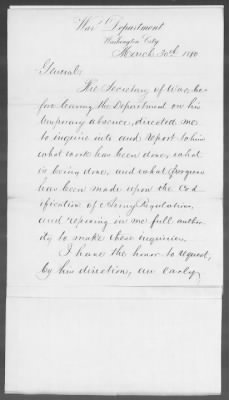 War Department
Washington City
March 30th 1880
General:
The Secretary of War, be-
fore leaving the Department on his
temporary absence, directed me
to inquire into and report to him
what work has been done, what
is being done, and what progress
has been made upon the Cod-
ification of Army Regulations,
and reposing in me full author-
ity to make these inquiries.
I have the honor to request,
by his direction, an early